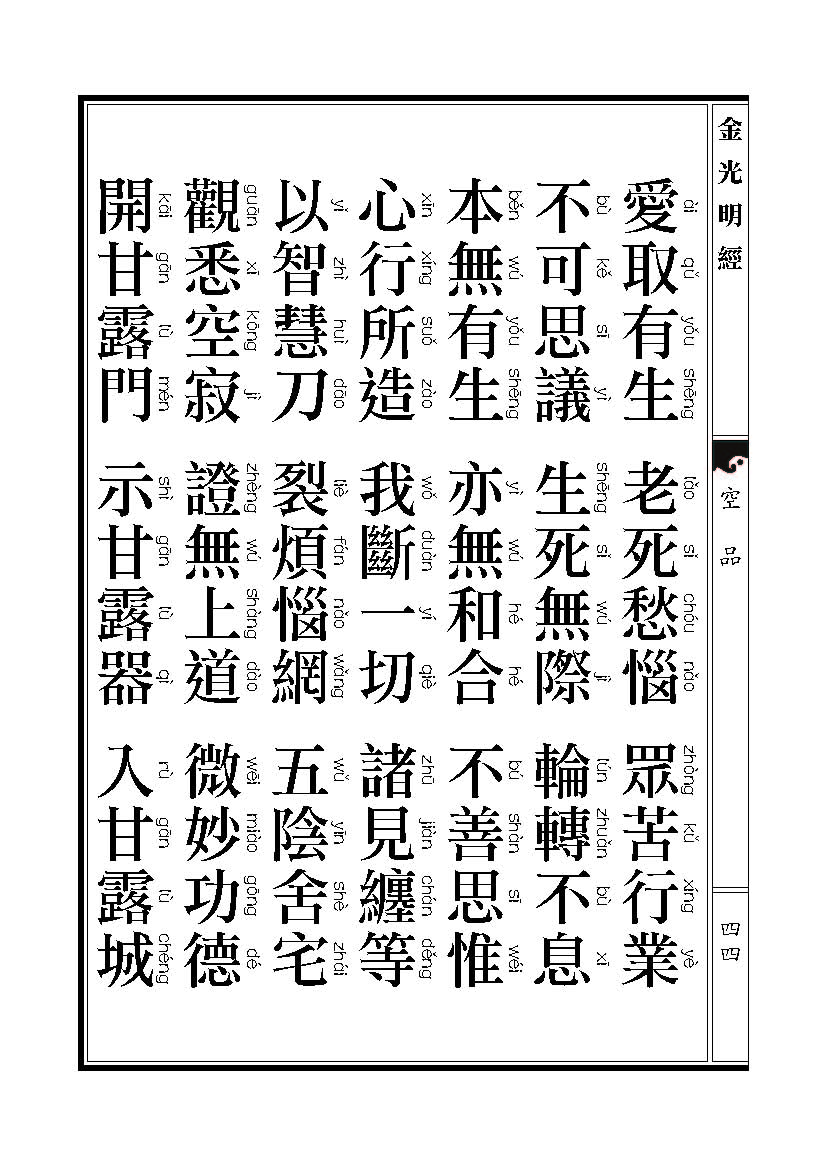 金光明經
空品
四四
ài qǔ yǒu shēng lǎo sǐ chóu nǎo zhòng kǔ xíng yè
愛取有生 老死愁惱 眾苦行業
bù kě sī yì shēng sǐ wú jì lún zhuǎn bù xī
不可思議 生死無際 輪轉不息
běn wú yǒu shēng yì wú hé hé bú shàn sī wéi
本無有生 亦無和合 不善思惟
xīn xíng suǒ zào wǒ duàn yí qiè zhū jiàn chán děng
心行所造 我斷一切 諸見纏等
yǐ zhì huì dāo liè fán nǎo wǎng wǔ yīn shè zhái
以智慧刀 裂煩惱網 五陰舍宅
guān xī kōng jì zhèng wú shàng dào wēi miào gōng dé
觀悉空寂 證無上道 微妙功德
kāi gān lù mén shì gān lù qì rù gān lù chéng
開甘露門 示甘露器 入甘露城